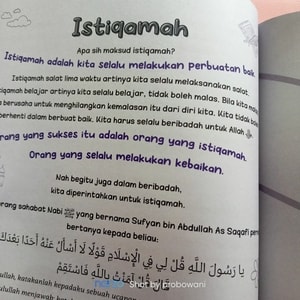 Istiqamah
Apa sih maksud istiqamah?
Istiqamah adalah kita selalu melakukan perbuatan baik.
Istiqamah salat lima waktu artinya kita selalu melaksanakan salat.
tiqamah belajar artinya kita selalu belajar, tidak boleh malas. Bila kita
berusaha untuk menghilangkan kemalasan itu dari diri kita. Kita tidak
berhenti dalam berbuat baik. Kita harus selalu beribadah untuk Allah
rang yang sukses itu adalah orang yang istiqamah.
Orang yang selalu melakukan kebaikan.
Nah begitu juga dalam beribadah,
kita diperintahkan untuk istiqamah.
orang sahabat Nabi ﷺ yang bernama Sufyan bin Abdullah As Saqafi
bertanya kepada beliau:
يَا رَسُولَ اللَّهِ قُلْ لِي فِي الْإِسْلَامِ قَوْلًا لَا أَسْأَلُ عَنْهُ أَحَدًا بَعْدَكَ
آمَنْتُ بِاللَّهِ فَاسْتَقِمْ
ullah, katakanlah kepadaku sebuah ucapan
Shot by probowani